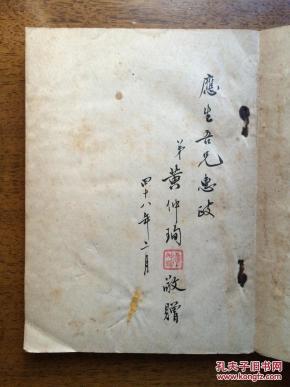 應生吾兄惠政
弟黃仲珣敬贈
四十八年二月
孔夫子旧书网